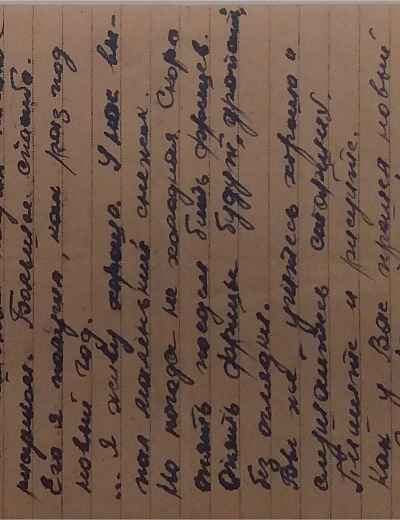 рисунком. Большое спасибо.
Его я получил, как раз под
новый год.
... Я живу хорошо. У нас вы-
пал маленький снежок.
Но погода не холодная. Скоро
опять поедем бить фрицев.
Опять фрицы будут, драпать
без оглядки.
Вы же, учитесь хорошо и
слушайтесь старших.
Пишите и рисуйте.
Как у Вас прошел новый